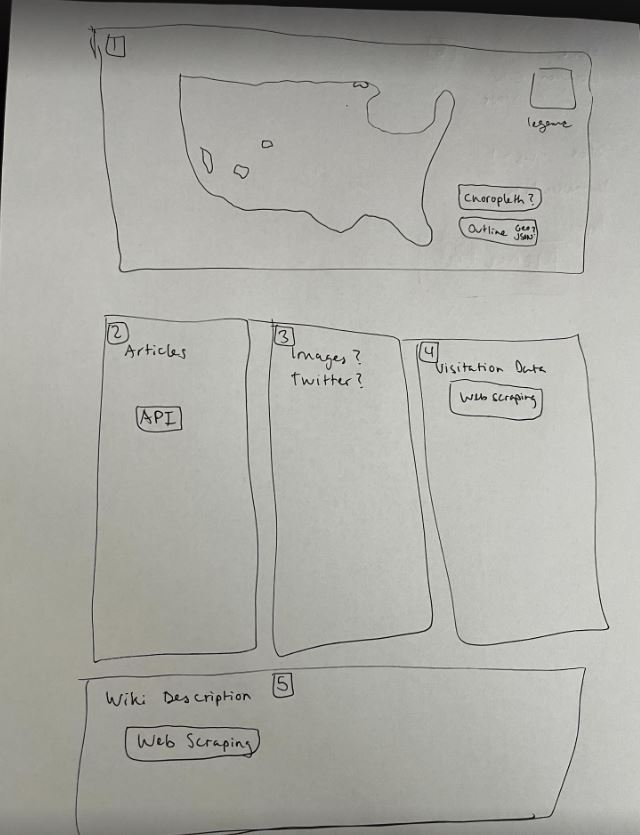 1
legend
Choropleth?
Outline Geo?
JSON?
2
Articles
API
3
Images?
Twitter?
4
Visitation Data
Web scraping
5
Wiki Description
Web Scraping